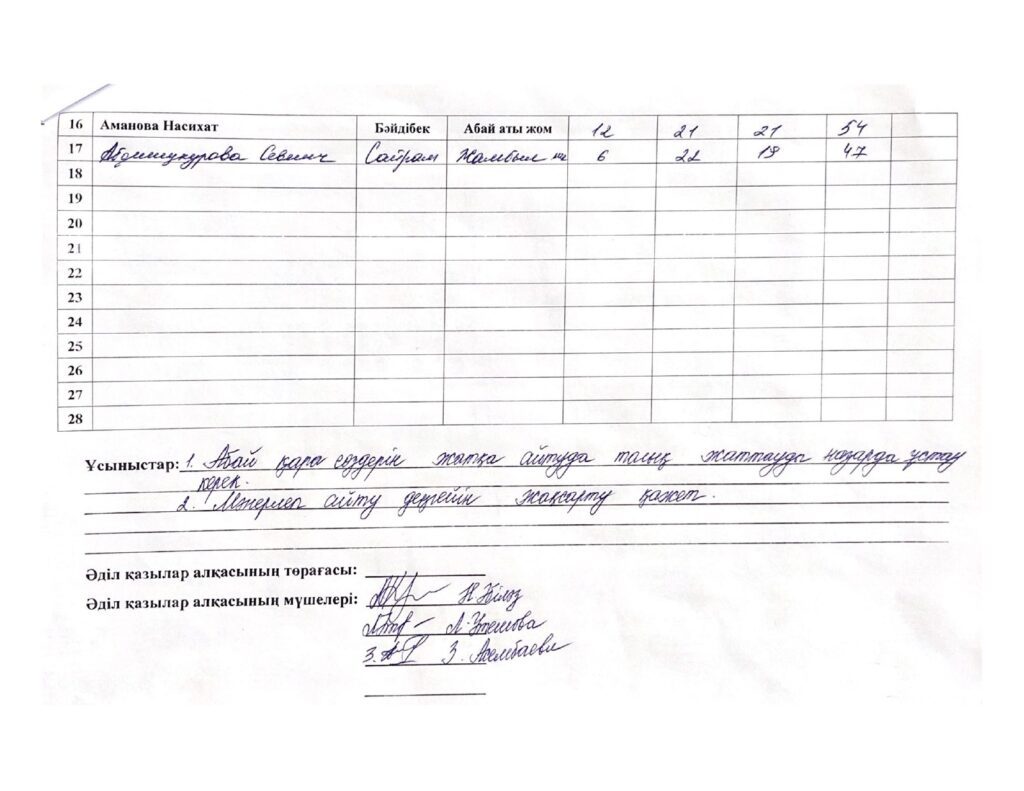 16 Аманова Насихат Бәйдібек Абай аты жом 12 21 21 54
17 Абдишукурова Севинч Сайрам Жамбыл 6 22 19 47
18
19
20
21
22
23
24
25
26
27
28
Ұсыныстар: 1. Абай қара сөздерін жатқа айтуда толық жаттауды назарда ұстау
керек.
2. Мәнерлеп айту деңгейін жақсарту қажет.
Әділ қазылар алқасының төрағасы:
Әділ қазылар алқасының мүшелері:
Л. Утешова
З. Асембаева